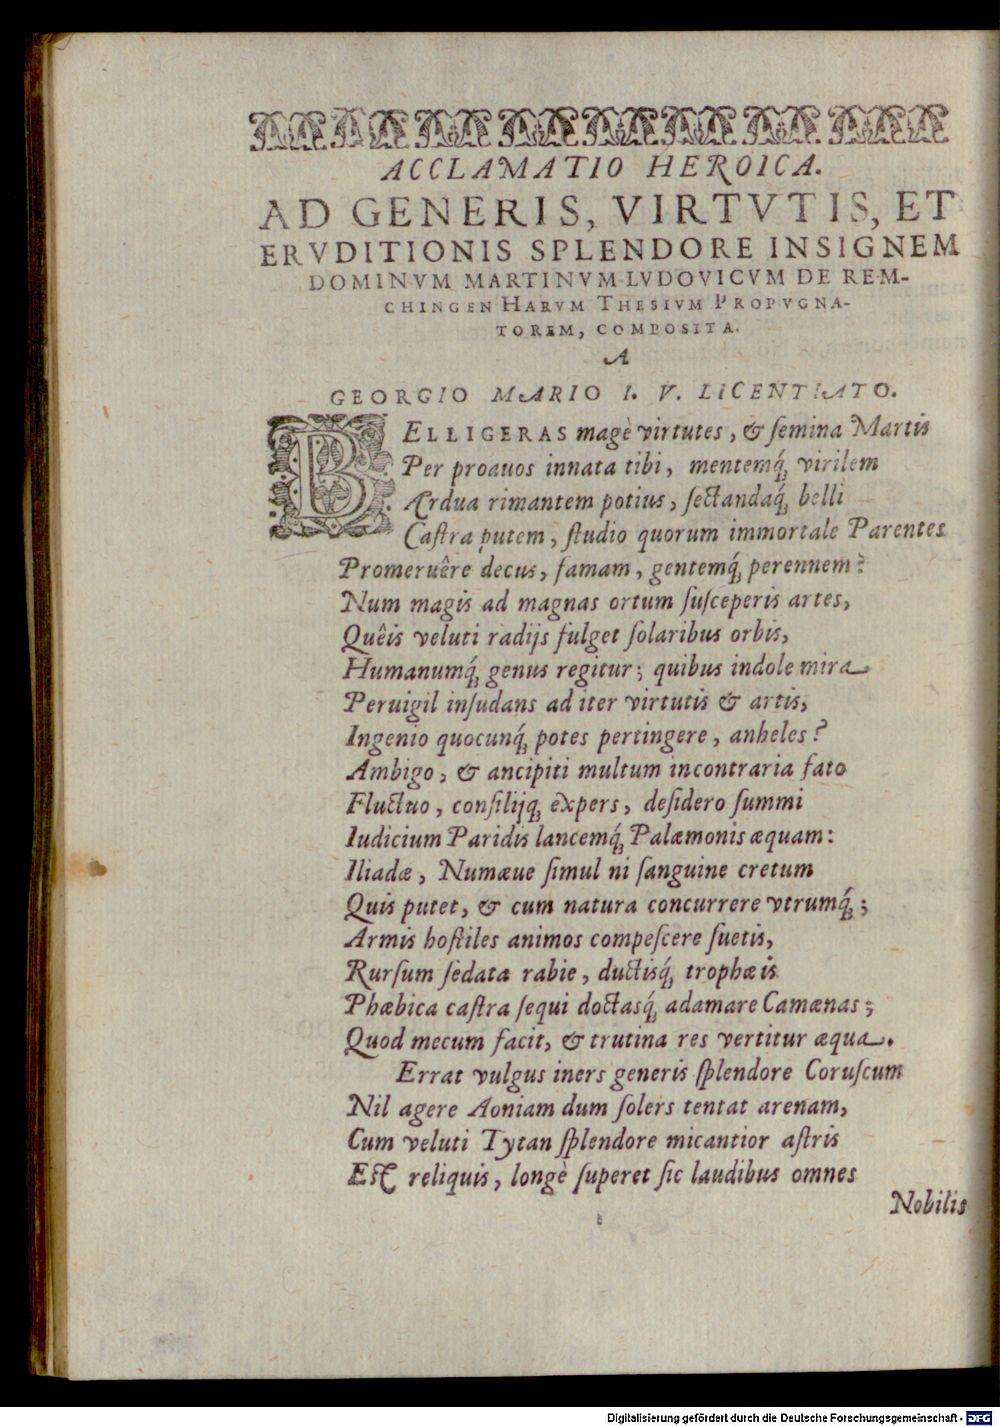 ACCLAMATIO HEROICA.
AD GENERIS, VIRTVTIS, ET
ERVDITIONIS SPLENDORE INSIGNEM
DOMINVM MARTINVM LVDOVICVM DE REM-
CHINGEN HARVM THESIVM PROPVGNA-
TOREM, COMPOSITA.
A
GEORGIO MARIO I. V. LICENTIATO.
BELLIGERAS magè virtutes, & ſemina Martis
Per proauos innata tibi, mentemq́; virilem
Ardua rimantem potius, ſectandaq́; belli
Caſtra putem, ſtudio quorum immortale Parentes
Promeruêre decus, famam, gentemq́; perennem?
Num magis ad magnas ortum ſuſceperis artes,
Quêis veluti radijs fulget ſolaribus orbis,
Humanumq́; genus regitur; quibus indole mira
Peruigil inſudans ad iter virtutis & artis,
Ingenio quocunq́; potes pertingere, anheles?
Ambigo, & ancipiti multum incontraria fato
Fluctuo, conſilijq; expers, deſidero ſummi
Iudicium Paridis lancemq́; Palæmonis æquam:
Iliadæ, Numæue ſimul ni ſanguine cretum
Quis putet, & cum natura concurrere vtrumq́;;
Armis hoſtiles animos compeſcere ſuetis,
Rurſum ſedata rabie, ductisq́; trophæis
Phæbica caſtra ſequi doctasq́; adamare Camænas;
Quod mecum facit, & trutina res vertitur æqua.
Errat vulgus iners generis ſplendore Coruſcum
Nil agere Aoniam dum ſolers tentat arenam,
Cum veluti Tytan ſplendore micantior aſtris
Eſt reliquis, longè ſuperet ſic laudibus omnes
Nobilis
Digitalisierung gefördert durch die Deutsche Forschungsgemeinschaft - DFG